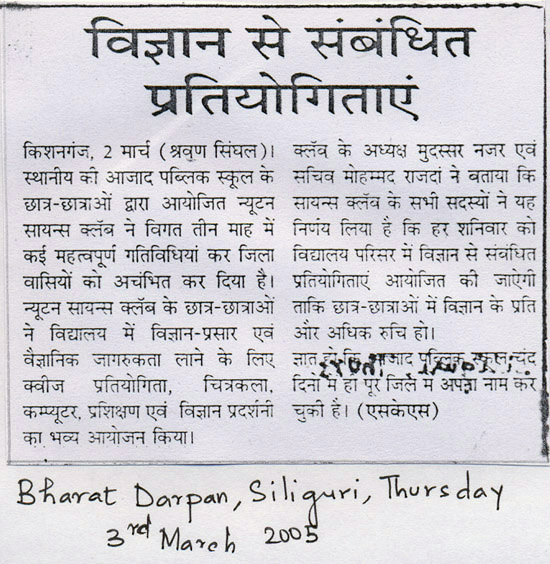 विज्ञान से संबंधित
प्रतियोगिताएं
किशनगंज, 2 मार्च (श्रवण सिंघल)।
स्थानीय की आजाद पब्लिक स्कूल के
छात्र-छात्राओं द्वारा आयोजित न्यूटन
सायन्स क्लॅब ने विगत तीन माह में
कई महत्वपूर्ण गतिविधियां कर जिला
वासियों को अचंभित कर दिया है।
न्यूटन सायन्स क्लॅब के छात्र-छात्राओं
ने विद्यालय में विज्ञान-प्रसार एवं
वैज्ञानिक जागरुकता लाने के लिए
क्वीज प्रतियोगिता, चित्रकला,
कम्प्यूटर, प्रशिक्षण एवं विज्ञान प्रदर्शनी
का भव्य आयोजन किया।
क्लॅब के अध्यक्ष मुदस्सर नजर एवं
सचिव मोहम्मद राजदां ने बताया कि
सायन्स क्लॅब के सभी सदस्यों ने यह
निर्णय लिया है कि हर शनिवार को
विद्यालय परिसर में विज्ञान से संबंधित
प्रतियोगिताएं आयोजित की जाऐगी
ताकि छात्र-छात्राओं में विज्ञान के प्रति
और अधिक रुचि हो।
ज्ञात हो कि आजाद पब्लिक स्कूल चंद
दिनों में ही पूरे जिले में अपना नाम कर
चुकी है। (एसकेएस)
Bharat Darpan, Siliguri, Thursday
3rd March 2005